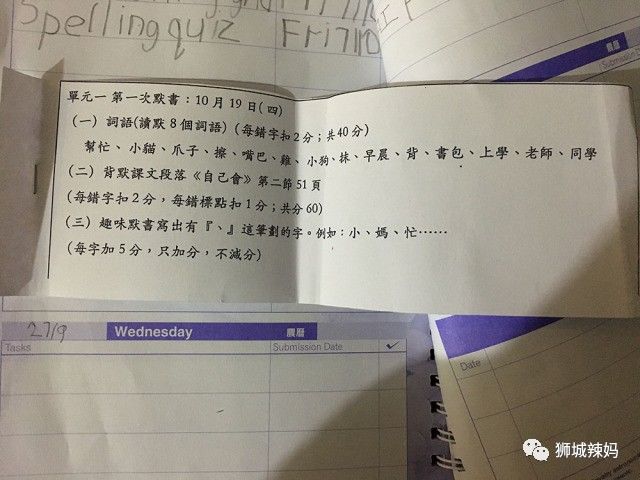 Spelling quiz Fri 7/10
農曆
Submission Da
單元一 第一次默書：10月19日(四)
(一) 詞語(讀默8個詞語) (每錯字扣2分；共40分)
幫忙、小貓、爪子、擦、嘴巴、雞、小狗、抹、早晨、背、書包、上學、老師、同學
(二) 背默課文段落《自己會》第二節51頁
(每錯字扣2分，每錯標點扣1分；共分60)
(三) 趣味默書寫出有『、』這筆劃的字。例如：小、媽、忙……
(每字加5分，只加分，不減分)
27/9 Wednesday 農曆
Tasks Submission Date ✓
Date
狮城辣妈